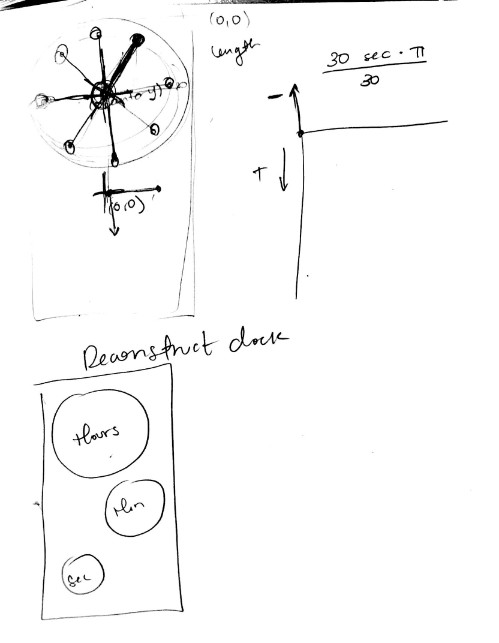 (0,0)
length
30 sec · π
30
−
+
(0,0)
Deconstruct clock
Hours
Min
Sec